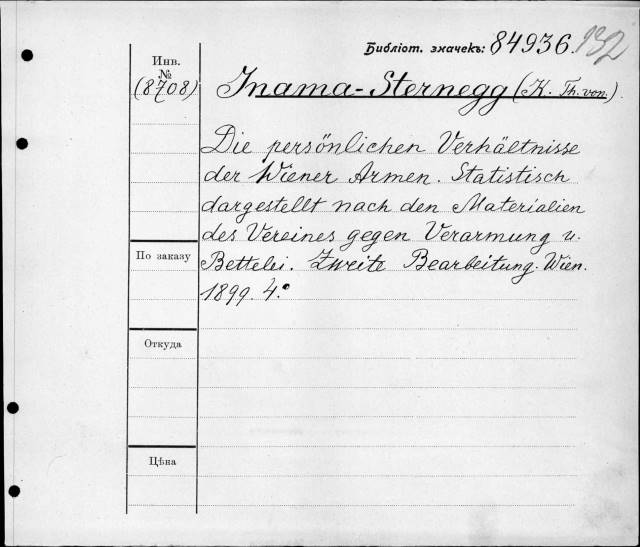 Библіот. значекъ: 84936. 132
Инв.
№
(8708)
Inama-Sternegg (K. Th. von).
Die persönlichen Verhältnisse
der Wiener Armen. Statistisch
dargestellt nach den Materialien
des Vereines gegen Verarmung u.
Bettelei. Zweite Bearbeitung. Wien.
1899. 4.°
По заказу
Откуда
Цѣна